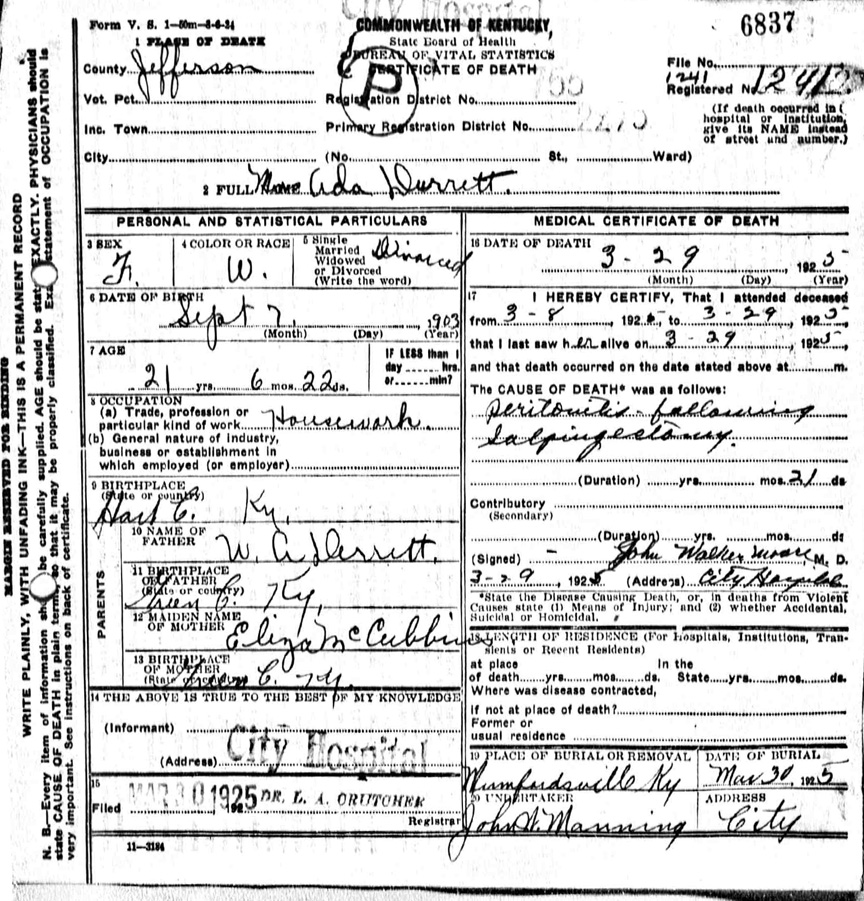 City Hospital
Form V. S. 1—50m—8-6-24
COMMONWEALTH OF KENTUCKY,
6837
1 PLACE OF DEATH
State Board of Health
BUREAU OF VITAL STATISTICS
CERTIFICATE OF DEATH
P
County Jefferson
File No.
1241
Registered No. 1241
Vot. Pct.
Registration District No. 755
(If death occurred in
hospital or institution,
give its NAME instead
of street and number.)
Inc. Town
Primary Registration District No. 2275
City
(No. St., Ward)
2 FULL NAME Ada Durrett.
PERSONAL AND STATISTICAL PARTICULARS
3 SEX
F.
4 COLOR OR RACE
W.
5 Single
Married
Widowed
or Divorced
(Write the word)
Divorced
6 DATE OF BIRTH
Sept 7, 1903
(Month) (Day) (Year)
7 AGE
21 yrs. 6 mos. 22 ds.
IF LESS than 1
day hrs.
or min?
8 OCCUPATION
(a) Trade, profession or
particular kind of work Housework.
(b) General nature of industry,
business or establishment in
which employed (or employer)
9 BIRTHPLACE
(State or country)
Hart C. Ky.
PARENTS
10 NAME OF
FATHER
W. A Derrett.
11 BIRTHPLACE
OF FATHER
(State or country)
Green C. Ky,
12 MAIDEN NAME
OF MOTHER
Eliza McCubbins
13 BIRTHPLACE
OF MOTHER
(State or country)
Green C. Ky.
14 THE ABOVE IS TRUE TO THE BEST OF MY KNOWLEDGE
(Informant)
City Hospital
(Address)
15
Filed MAR 30 1925 DR. L. A. CRUTCHER
Registrar
11—3184
MEDICAL CERTIFICATE OF DEATH
16 DATE OF DEATH
3 - 29, 1925
(Month) (Day) (Year)
17 I HEREBY CERTIFY, That I attended deceased
from 3 - 8, 1925, to 3 - 29, 1925,
that I last saw her alive on 3 - 29, 1925,
and that death occurred on the date stated above at m.
The CAUSE OF DEATH* was as follows:
Peritonitis - following
Salpingectomy.
(Duration) yrs. mos. 21 ds
Contributory
(Secondary)
(Duration) yrs. mos. ds
(Signed) - John Walker Moore M. D.
3-29, 1925 (Address) City Hospital
*State the Disease Causing Death, or, in deaths from Violent
Causes state (1) Means of Injury; and (2) whether Accidental,
Suicidal or Homicidal.
18 LENGTH OF RESIDENCE (For Hospitals, Institutions, Tran-
sients or Recent Residents)
at place In the
of death yrs. mos. ds. State yrs. mos. ds.
Where was disease contracted,
If not at place of death?
Former or
usual residence
19 PLACE OF BURIAL OR REMOVAL
Munfordsville Ky
DATE OF BURIAL
Mar 30, 1925
20 UNDERTAKER
John Manning
ADDRESS
City
MARGIN RESERVED FOR BINDING
WRITE PLAINLY, WITH UNFADING INK—THIS IS A PERMANENT RECORD
N. B.—Every item of information should be carefully supplied. AGE should be stated EXACTLY. PHYSICIANS should
state CAUSE OF DEATH in plain terms, so that it may be properly classified. Exact statement of OCCUPATION is
very important. See instructions on back of certificate.